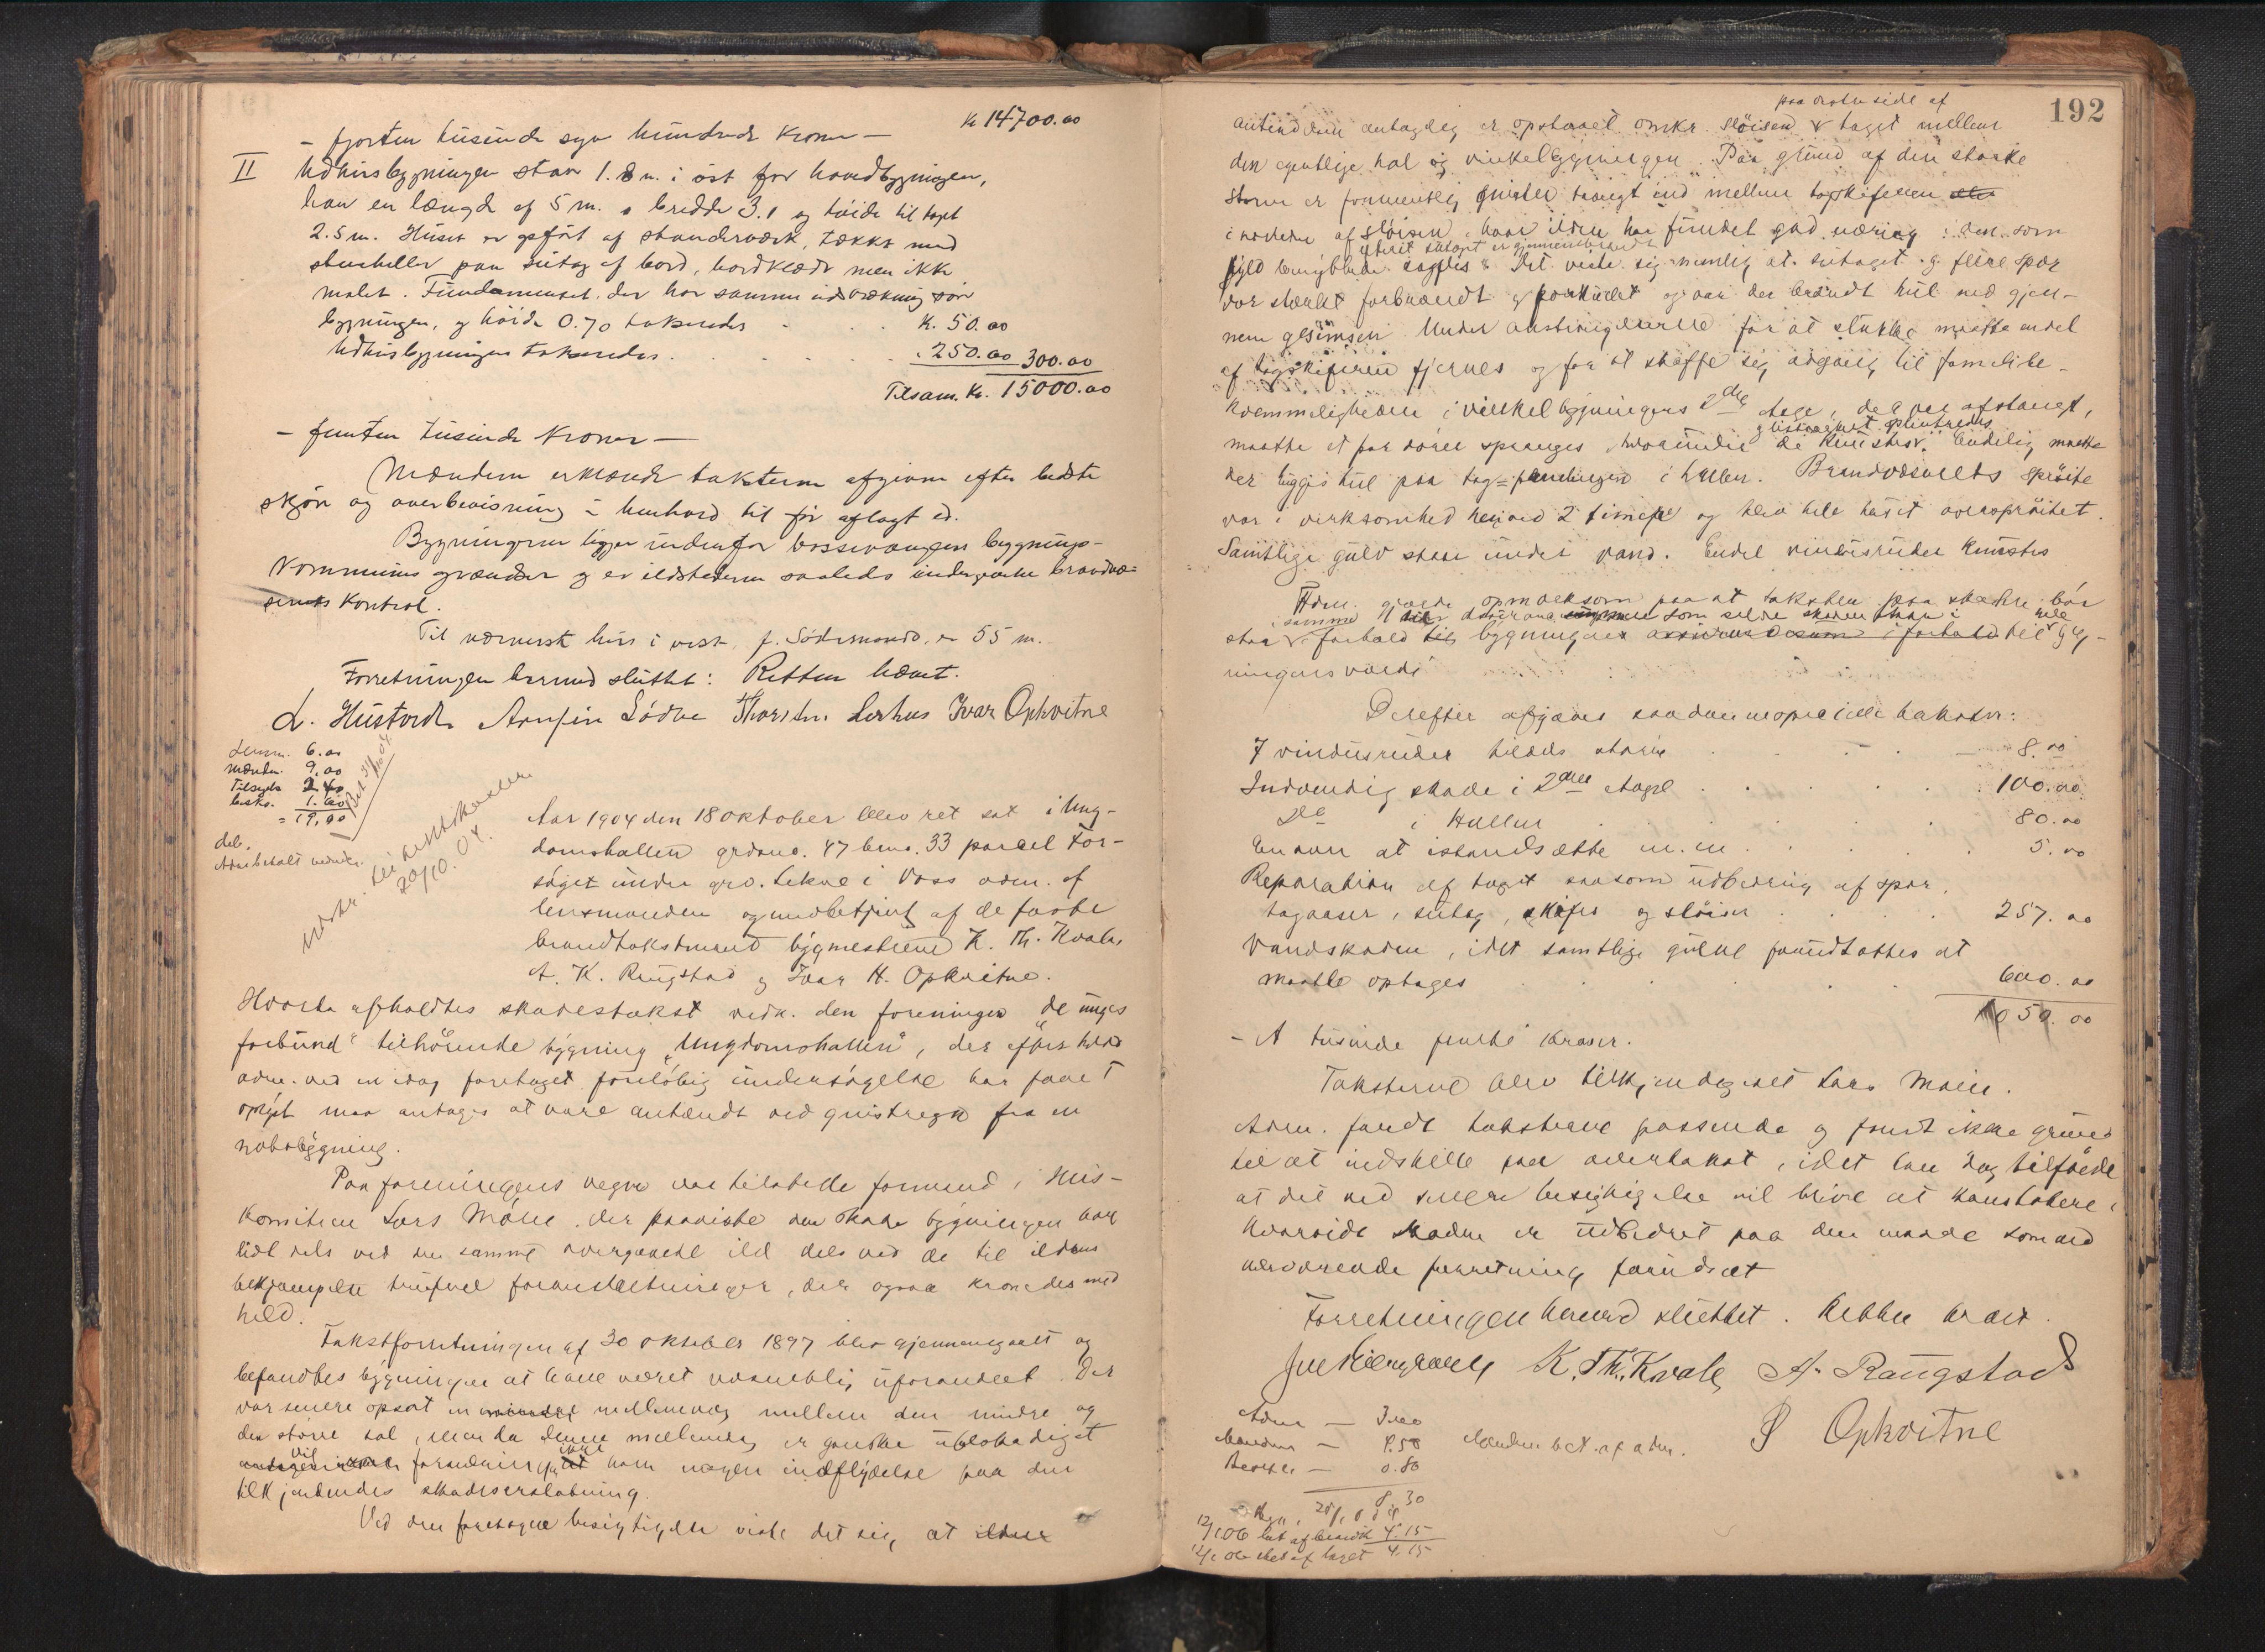 K 14700.00
- fjorten tusinde syv hundrede kroner -
II Udhusbygningen staar 1.8 m. i øst for hovedbygningen,
har en længde af 5 m. bredde 3.1 og høide til taget
2.5 m. Huset er opført af standerværk, tækkt med
stenheller paa sutag af bord, bordklædt men ikke
malet. Fundamentet, der har samme udstrækning som
bygningen, og høide 0.70 taksertes . . . K. 50.00
Udhusbygningen taksertes . . . . . 250.00 300.00
Tilsam. Kr. 15000.00
- femten tusinde kroner -
Mændene erklærede taksterne afgivne efter bedste
skjøn og overbevisning i henhold til før aflagt ed.
Bygningerne ligger indenfor Vossevangens bygnings-
kommunes grændser og er ildstederne saaledes undergivne brandvæ-
senets kontrol.
Til nærmeste hus i vest, er 55 m.
Forretningen hermed sluttet: Retten hævet.
L. Hustvedt Arnfin Lødve Thorstein Lerhus Ivar Opkvitne
Lensm. 6.00
Mændn. 9.00
Tilsigels 2.40
besko. 1.60
= 19.00
deb.
Udskr. til
20/10. 04.
Aar 1904 den 18 oktober blev ret sat i Ung-
domshallen grdsno. 47 brno. 33 parcel For-
søget under grd. Lekve i Voss adm. af
lensmanden og medbetjent af de faste
brandtakstmænd bygmestrene K. Th. Kvale,
A. K. Rangstad og Ivar H. Opkvitne.
Hvorda afholdtes skadestakst vedk. den foreningen "De unges
forbund" tilhørende bygning "Ungdomshallen", der efter hvad
adm. ved en idag foretaget foreløbig undersøgelse har faaet
oplyst maa antages at være antændt ved gnistregn fra en
nabobygning.
Paa foreningens vegne var tilstede formand i hus-
komiteen Lars Møen, der paaviste den skade bygningen har
lidt dels ved den samme overgaaede ild dels ved de til ildens
bekjæmpelse trufne foranstaltninger, der ogsaa kronedes med
held.
Takstforretningen af 30 oktober 1897 blev gjennemgaaet og
befandtes bygningen at have været væsentlig uforandret. Der
var senere opsat en mellemvæg mellem den mindre og
den større sal, men da denne mellemvæg er ganske ubeskadiget
vil forandringen ikke have nogen indflydelse paa den
tilkjendendes skadeserstatning.
Ved den foretagne besigtigelse viste det sig, at ilden
192
paa østre side af
antændelsen antagelig er opstaaet omkr. fløisen & taget mellem
den egentlige hal og vinkelbygningen. Paa grund af den stærke
storm er formentlig gnister trængt ind mellem tagskiferen
i nærheden af fløisen, hvor ilden har fundet god næring i den som
fyld benyttede sagflis & Det viste sig nemlig at sutaget og flere spær
var stærkt forbrændt & forkullet og var der brændt hul ned gjen-
nem gesimsen. Under anstrengelserne for at slukke maatte endel
af tagskiferen fjernes og for at skaffe sig adgang til familiebe-
kvemmeligheden i vinkelbygningens 2den etage, der var afstængt,
maatte et par døre sprænges, hvorunder de knustes. Endelig maatte
der hugges hul paa tag-panelingen i hallen. Brandvæsenets sprøite
var i virksomhed henved 2 timer og blev hele huset oversprøitet.
Samtlige gulv staar under vand. Endel vindusruder knustes
Adm. gjorde opmærksom paa at taksten paa skaden bør
staa i samme forhold til bygningens assurancesum som selve skaden staar i forhold til hele byg-
ningens værdi
Derefter afgaves saadanne specielle takster:
7 vindusruder tildels større . . . 8.00
Indvendig skade i 2den etage . . . 100.00
Do i Hallen . . . 80.00
En ovn at istandsætte m.m. . . . 5.00
Reparation af taget saasom udbedring af spær,
tagaaser, sutag, skifer og fløiser . . . 257.00
Vandskaden, idet samtlige gulve forudsættes at
maatte optages . . . 600.00
1050.00
- Et tusinde femti kroner.
Taksterne blev tilkjendegivet Lars Møen.
Adm. fandt taksterne passende og fandt ikke grund
til at indstille paa overtakst, idet han dog tilføiede
at det ved senere besigtigelse vil blive at konstatere,
hvorvidt skaden er udbedret paa den maade som ved
nærværende forretning forudsat
Forretningen hermed sluttet. Retten hævet.
K. Th. Kvale A. Rangstad
I Opkvitne
Adm — 3.00
Mændene — 4.50 Mændene bet. af adm.
Beskr. — 0.80
8.30
12/1 06 bet af brandk 4.15
12/1 06 bet af laget 4.15